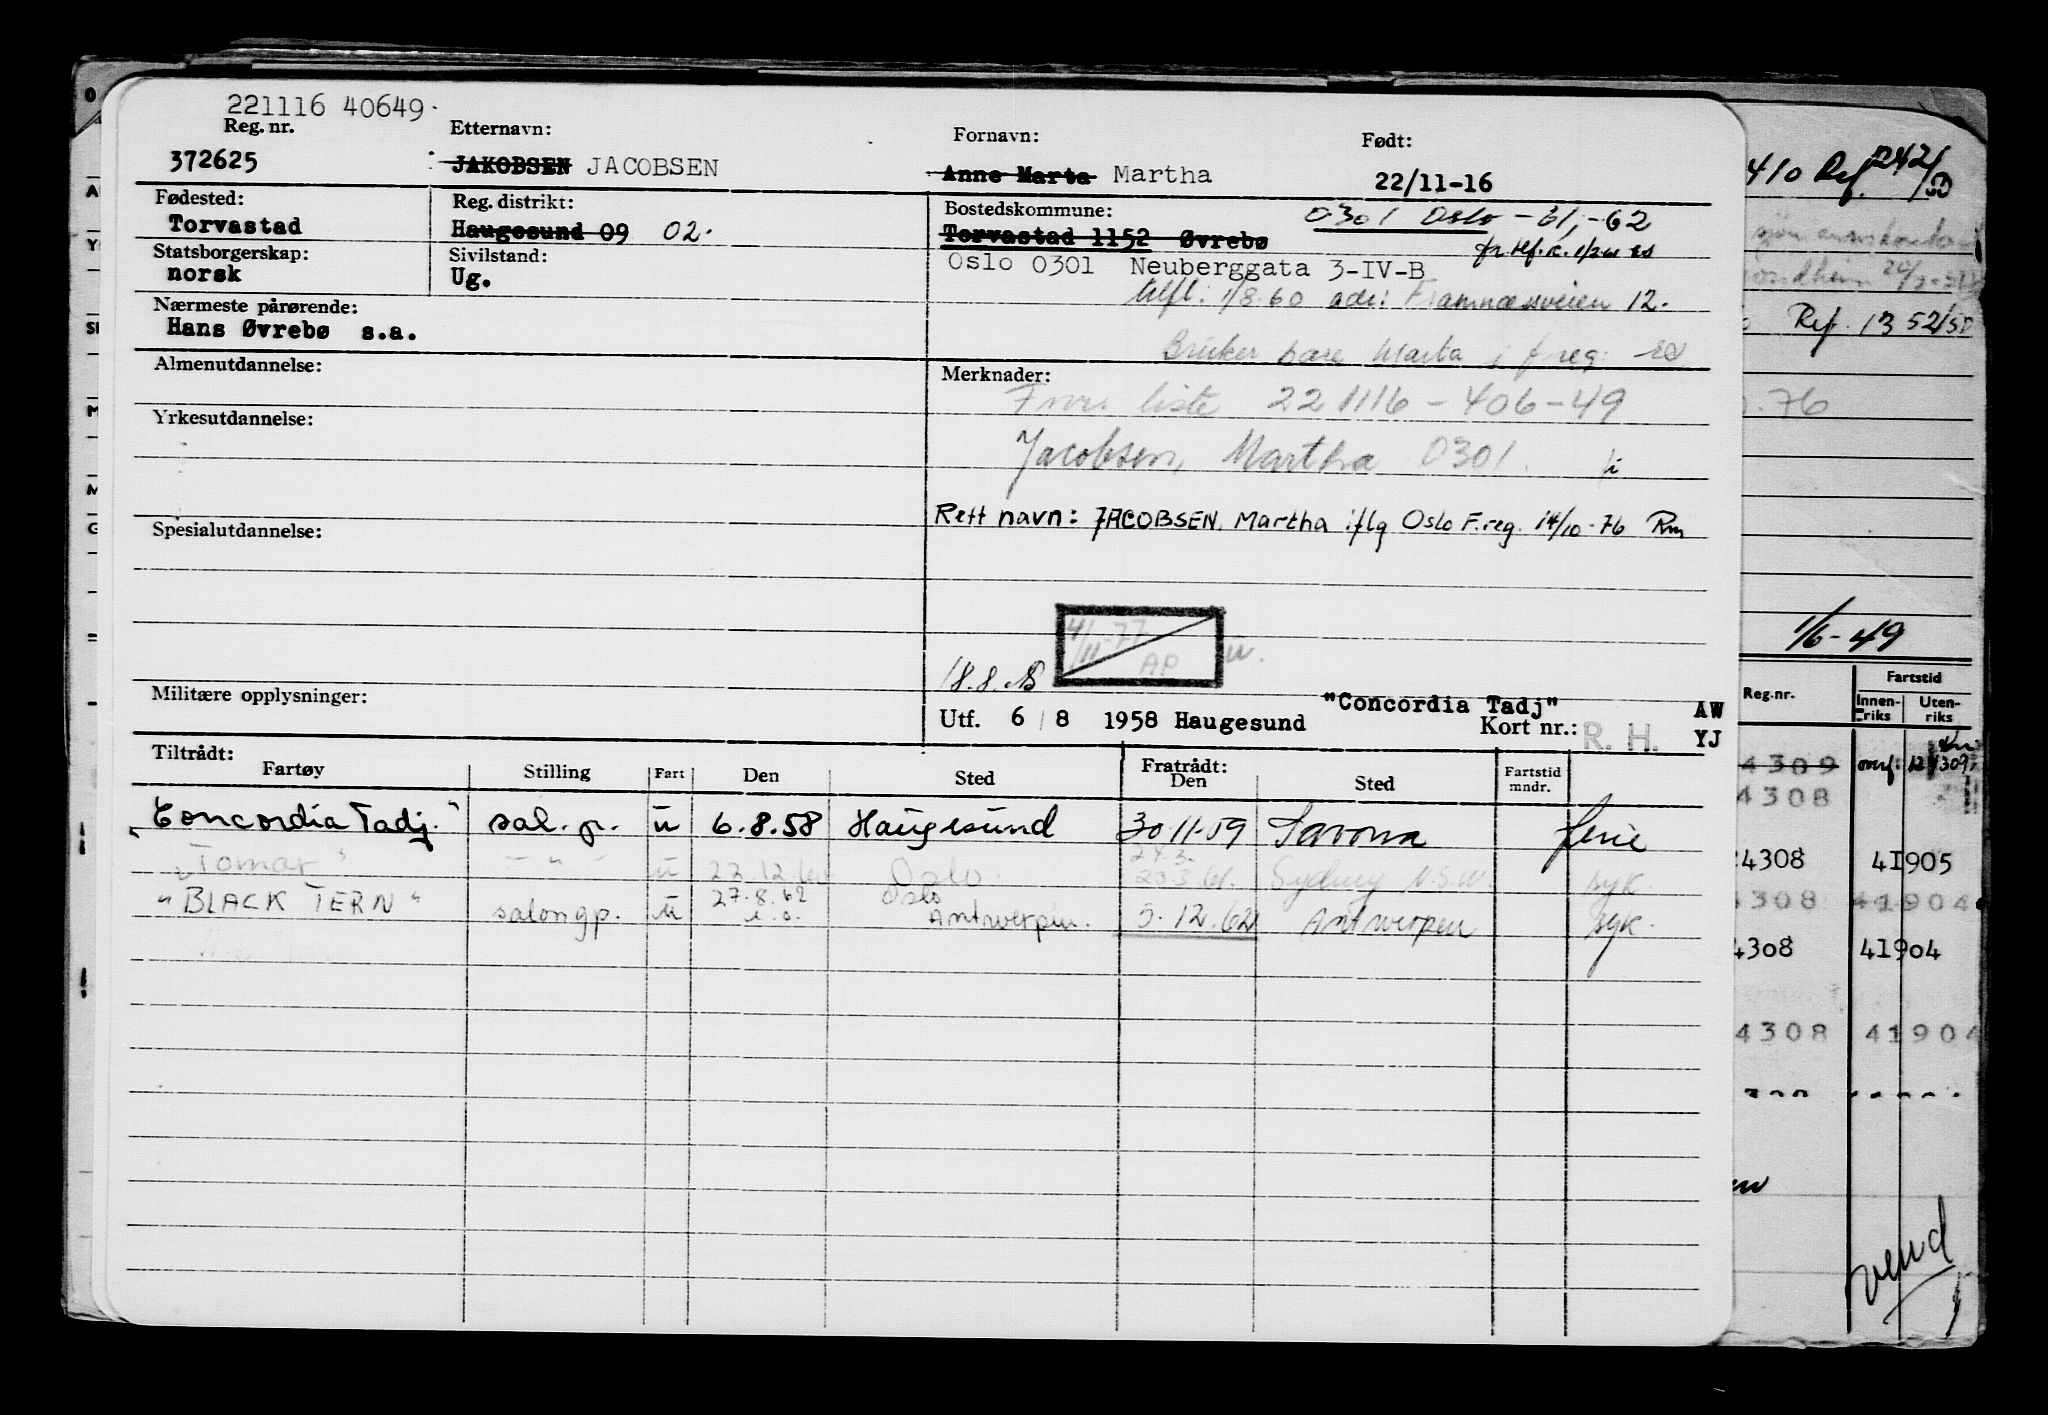 221116 40649.
Reg. nr. Etternavn: Fornavn: Født:
372625 JAKOBSEN JACOBSEN Anne Marta Martha 22/11-16
Fødested: Reg. distrikt: Bostedskommune: 0301 Oslo - 61, -62
Torvastad Haugesund 09 02. Torvastad 1152 Øvrebø
Statsborgerskap: Sivilstand:
norsk Ug. Oslo 0301 Neuberggata 3-IV-B
1/8.60 adr: Framnæsveien 12.
Nærmeste pårørende:
Hans Øvrebø s.a.
Bruker bare Marta i f.reg.
Almenutdannelse: Merknader:
liste 221116-406-49
Yrkesutdannelse:
Jacobsen, Martha 0301.
Rett navn: JACOBSEN, Martha iflg Oslo F.reg. 14/10-76 Rm
Spesialutdannelse:
4/11-77
AP
18.8.
Militære opplysninger:
"Concordia Tadj" AW
Utf. 6/8 1958 Haugesund Kort nr.: R. H. YJ
Tiltrådt: Fratrådt:
Fartøy Stilling Fart Den Sted Den Sted Fartstid mndr.
"Concordia Tadj." sal. p. u 6.8.58 Haugesund 30 11.59 Savona ferie
24.3.
"Tomar" - " - u 22.12.60 Oslo 23.3.61. Sydney N.S.W. syk.
27.8.62 Oslo
"BLACK TERN" salongp. u Antwerpen. 5.12.62 Antwerpen syk.
410 Ref. 242/50
Ref. 1352/50
.76
1/6-49
Reg.nr. Fartstid
Innenriks Utenriks
4309 overf. 124309
4308
4308 41905
4308 41904
4308 41904
4308 41904
vend